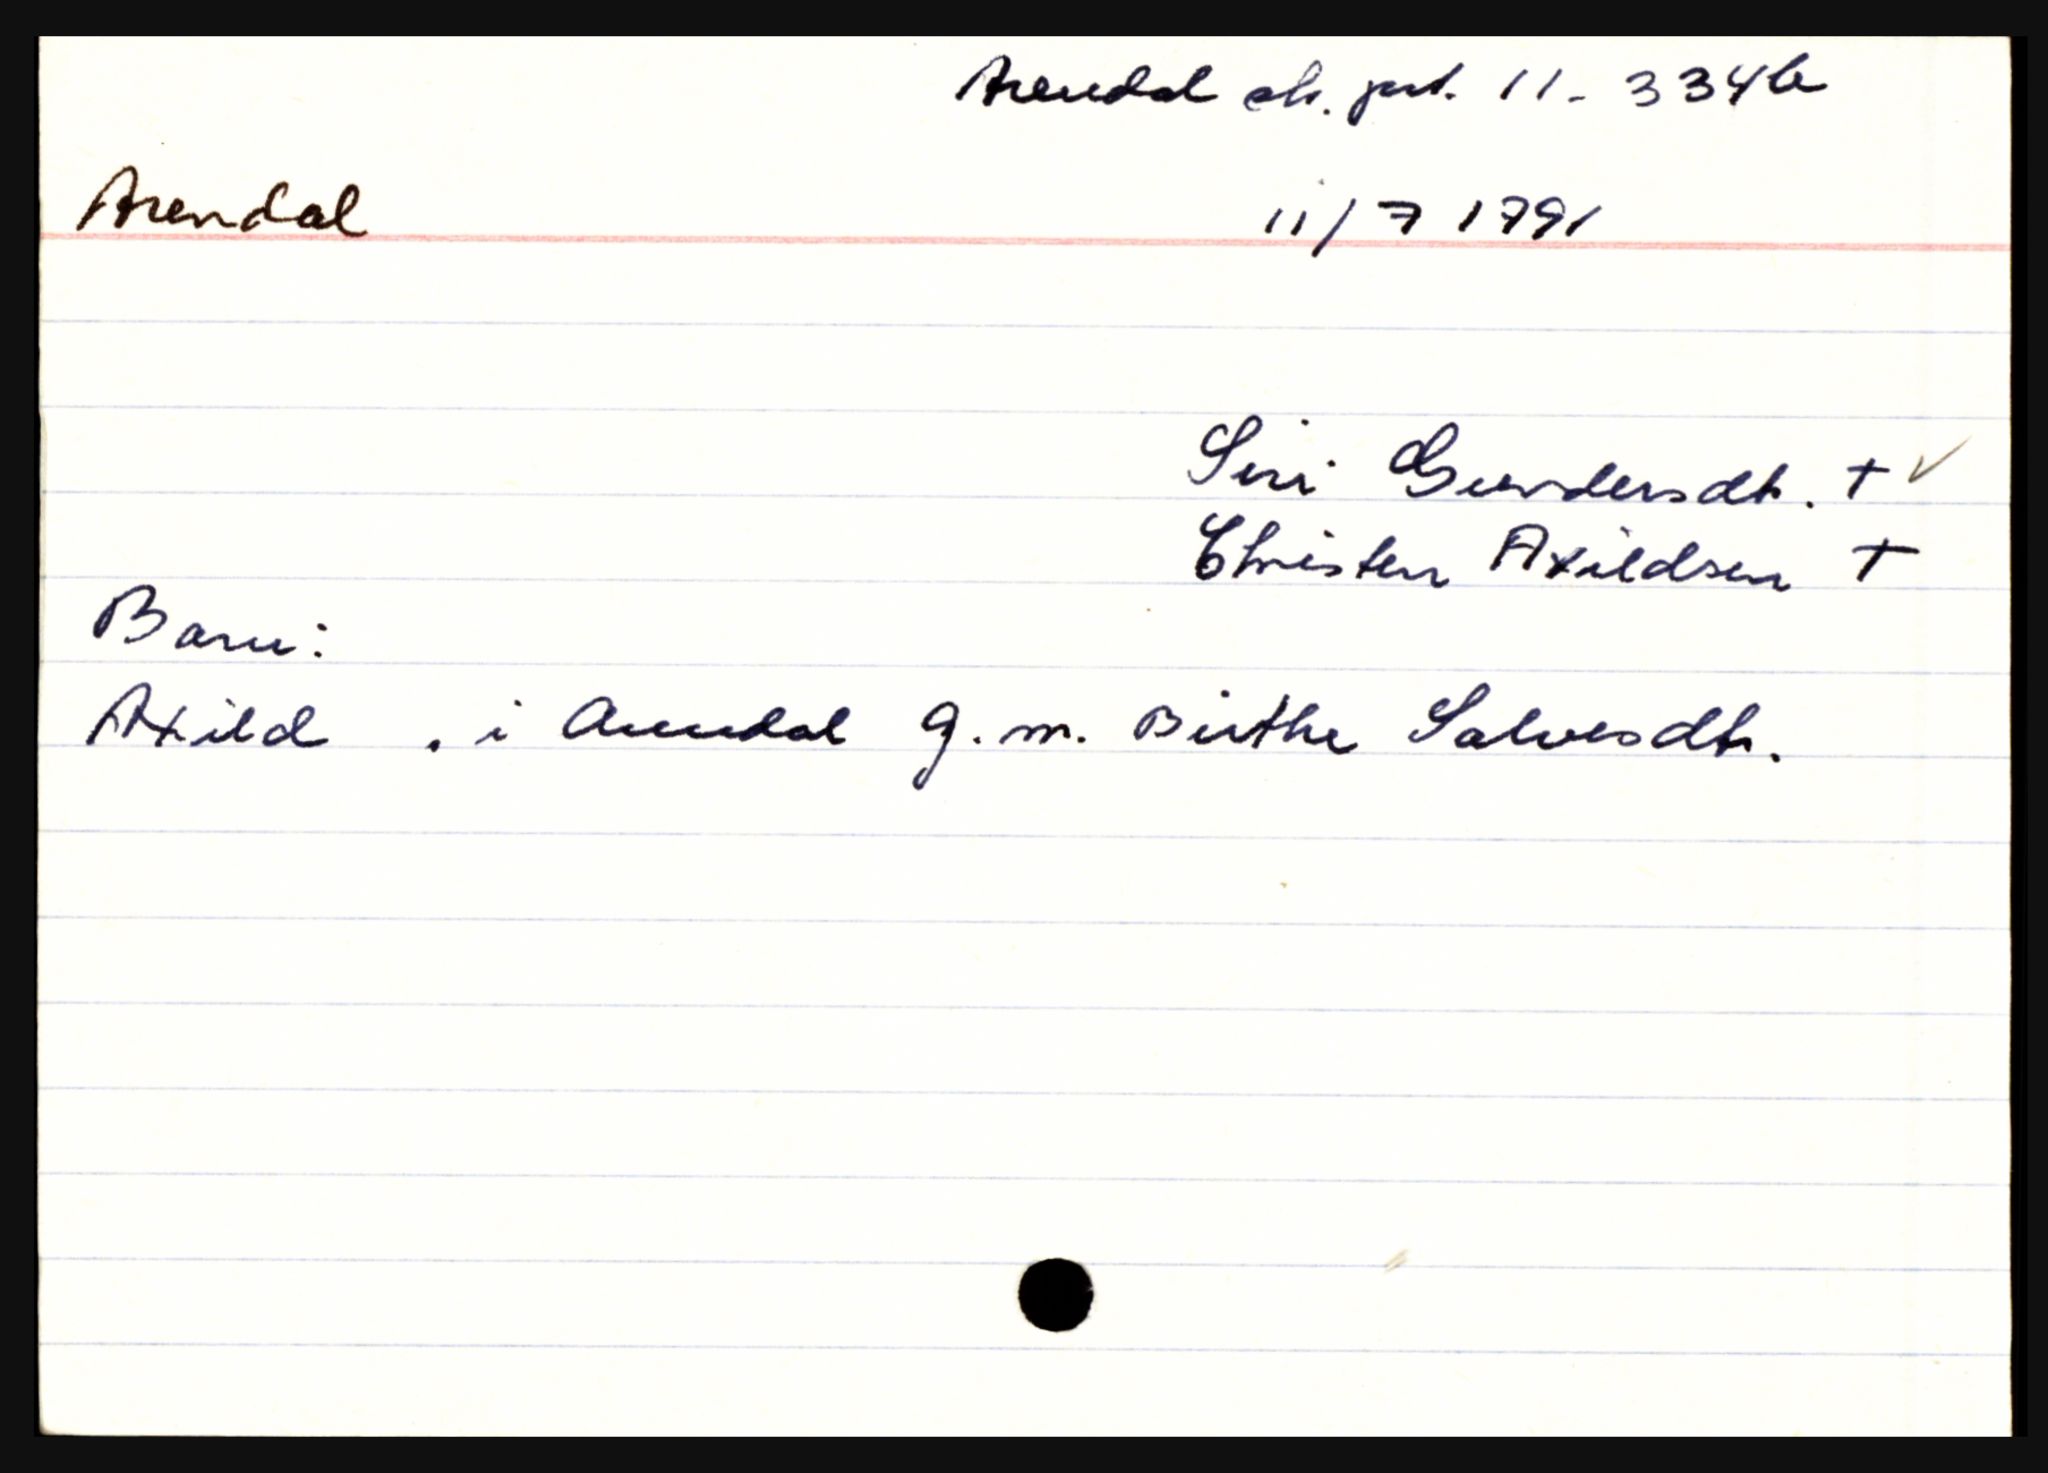 Arendal sk. prt. 11 - 334b
Arendal 11/7 1791
Siri Gundersdtr. † ✓
Christen Axildsen †
Barn:
Axild . i Arendal g. m. Birthe Salvesdtr.